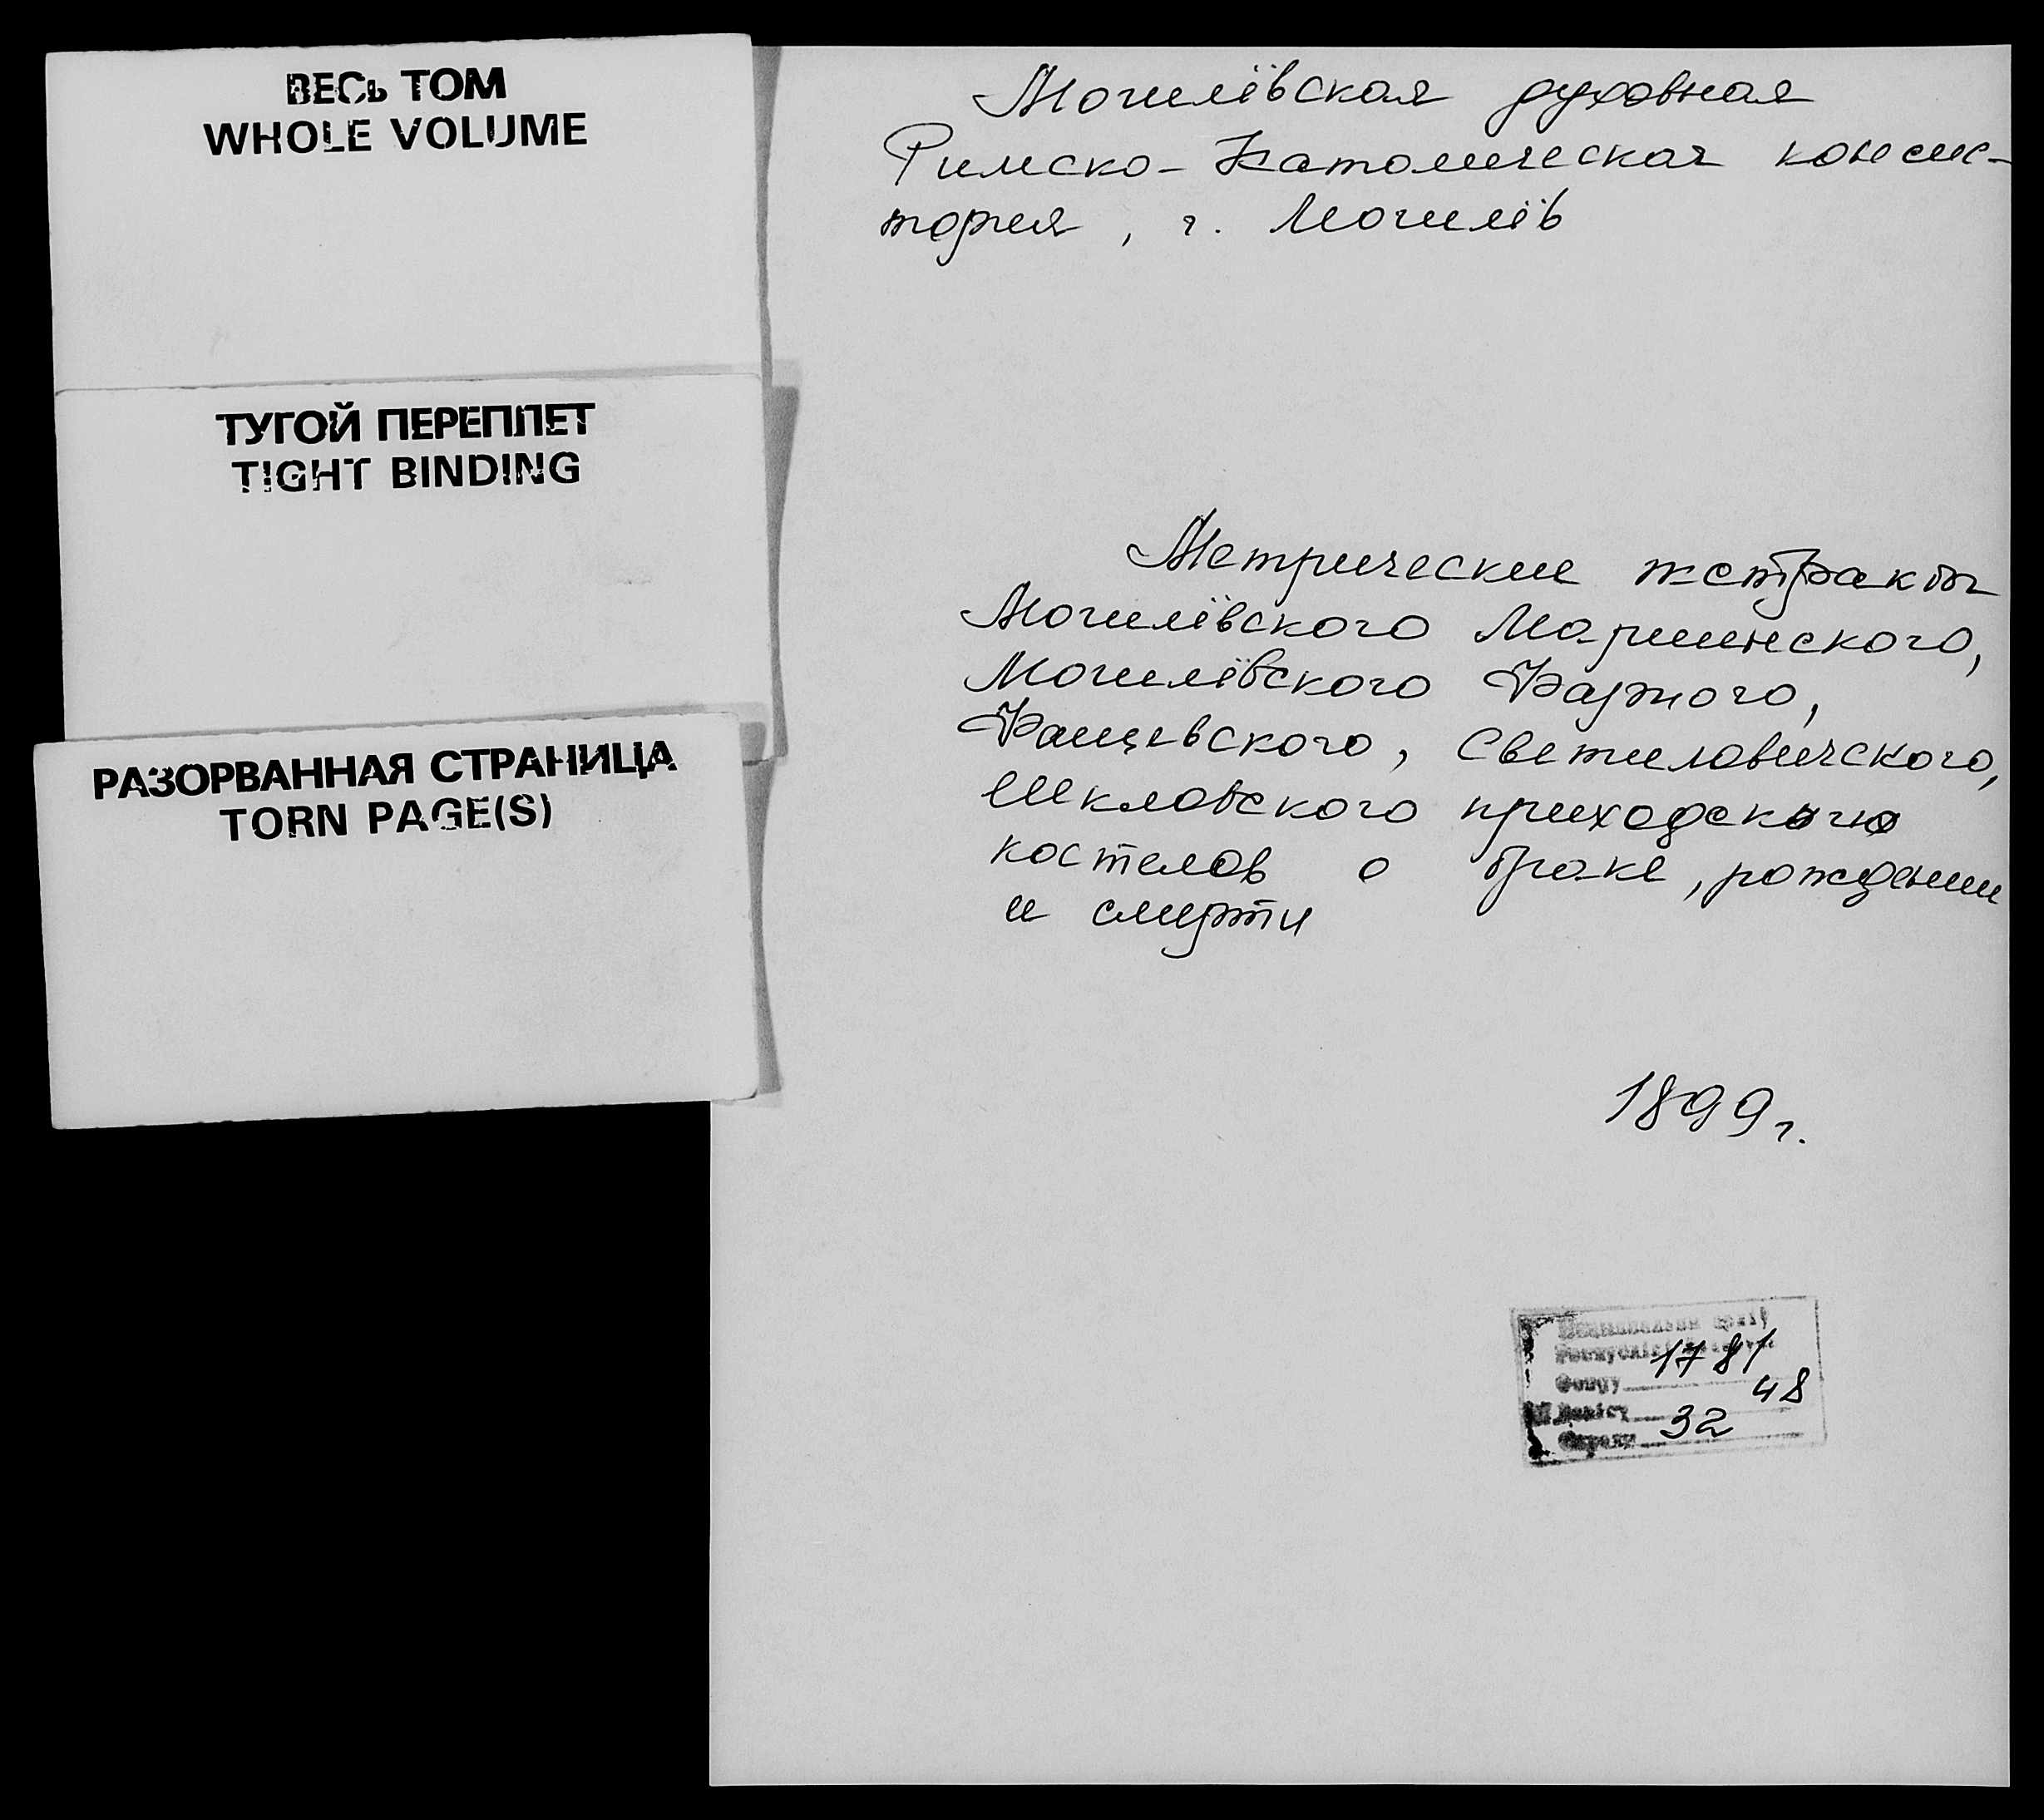 ВЕСЬ ТОМ
WHOLE VOLUME
ТУГОЙ ПЕРЕПЛЕТ
TIGHT BINDING
РАЗОРВАННАЯ СТРАНИЦА
TORN PAGE(S)
Могилёвская духовная
Римско-Католическая консис-
тория, г. Могилёв
Метрические экстракты
Могилёвского Мариинского,
Могилёвского Фарного,
Фащевского, Светиловичского,
Шкловского приходского
костелов о браке, рождении
и смерти
1899 г.
Нацыянальны архіў
Рэспублікі Беларусь
Фонд 1781
Вопіс 48
Справа 32